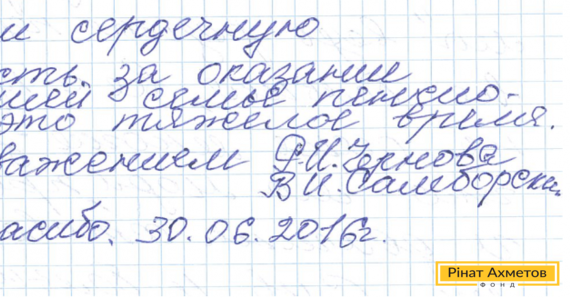 и сердечную
сть. за оказании
шей семье пенсио-
это тяжелое время.
важением Р.И.Чернова
В.И.Самборски
асибо. 30.06.2016г.
Рінат Ахметов
ФОНД